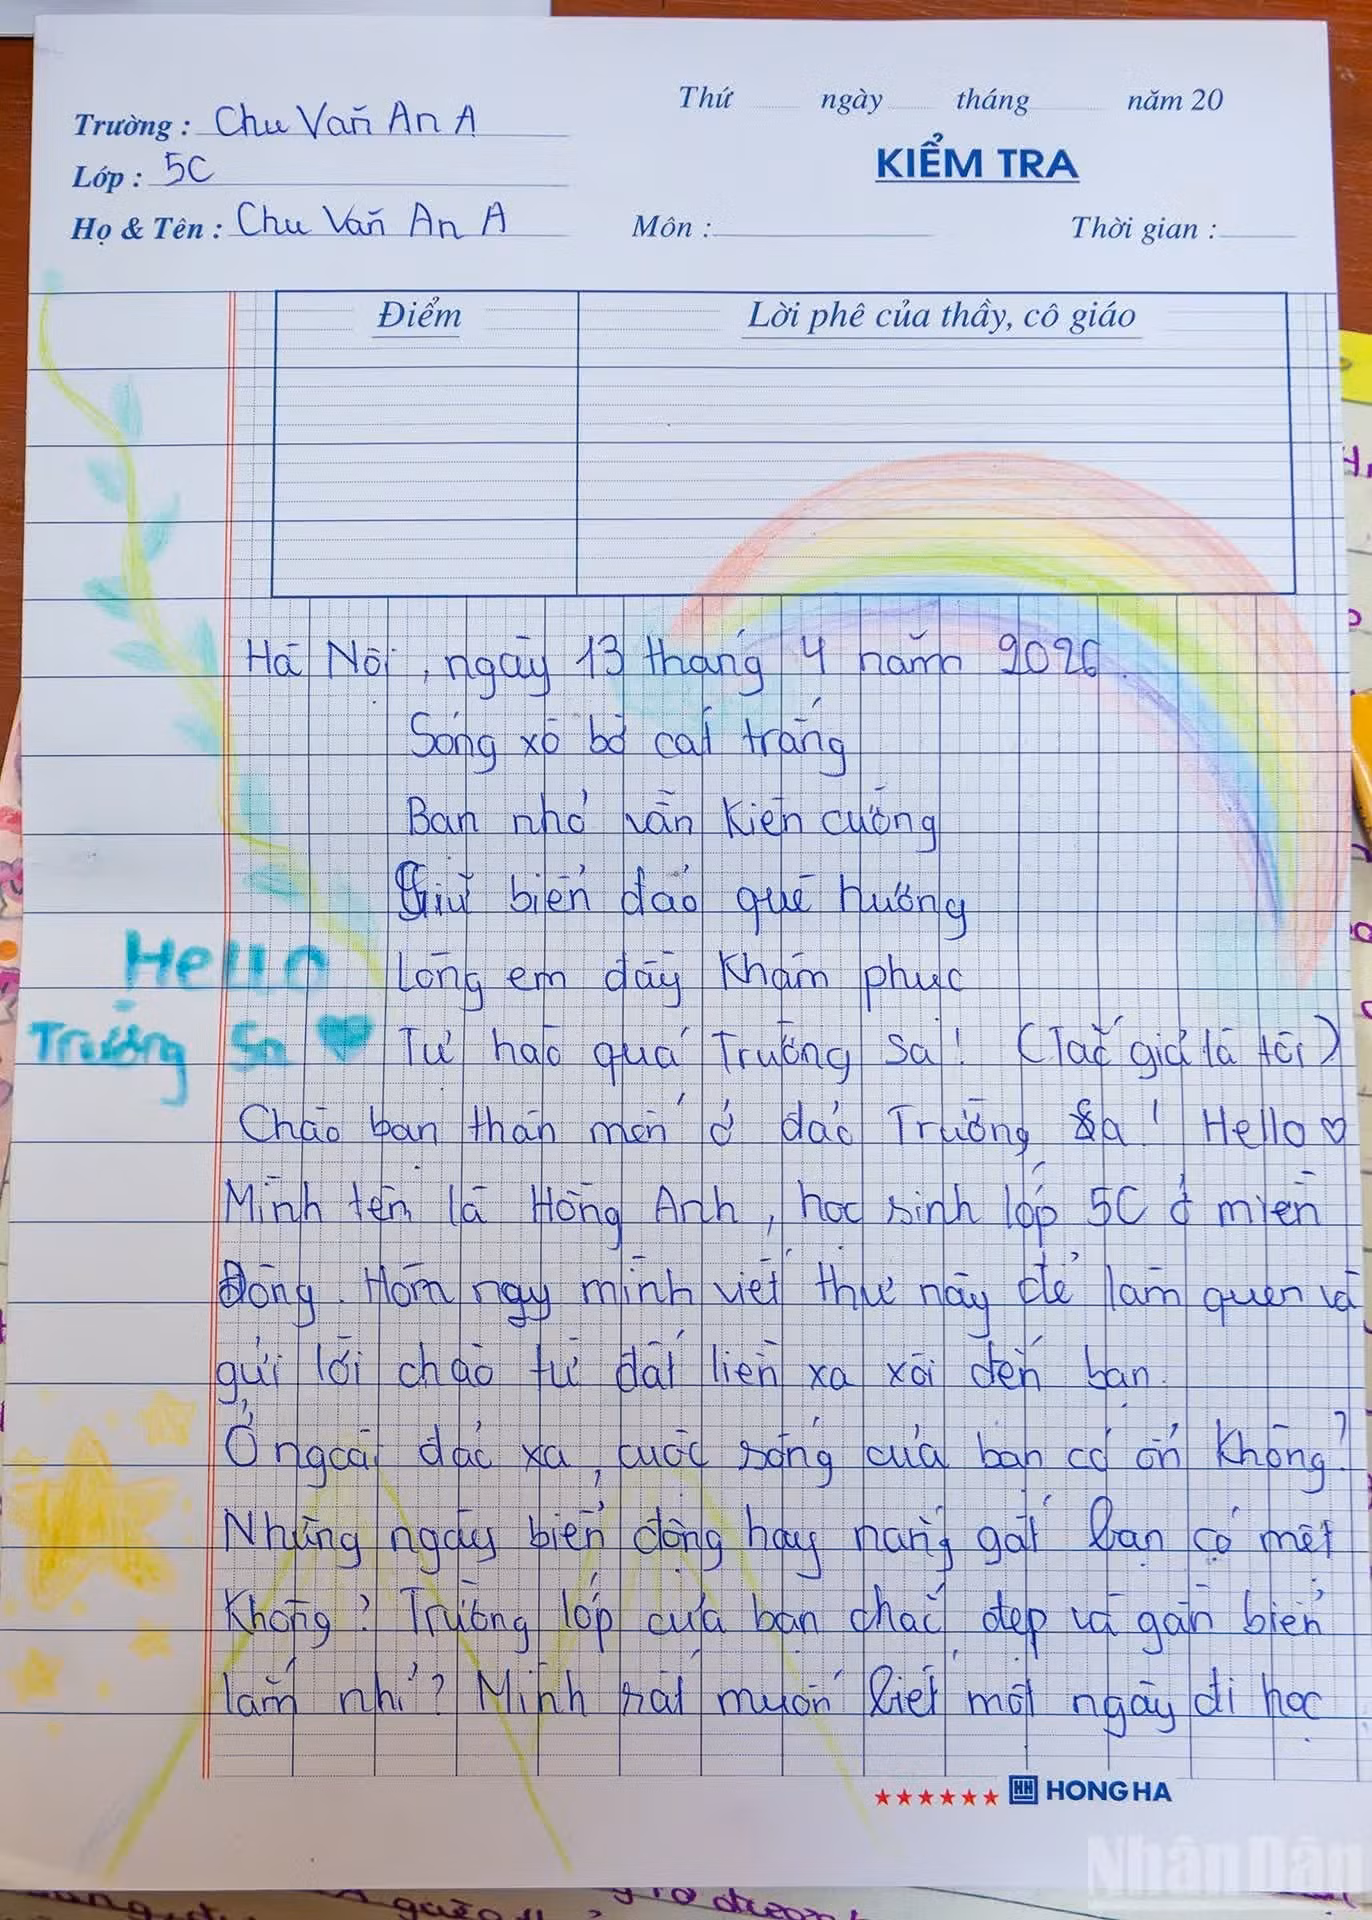 Thứ ngày tháng năm 20
Trường : Chu Văn An A
KIỂM TRA
Lớp : 5C
Họ & Tên : Chu Văn An A Môn : Thời gian :
Điểm Lời phê của thầy, cô giáo
Hà Nội, ngày 13 tháng 4 năm 2026.
Sóng xô bờ cát trắng
Bạn nhỏ vẫn kiên cường
Giữ biển đảo quê hương
Hello
Lòng em đầy khâm phục
Trường Sa
Tự hào quá Trường Sa! (Tác giả là tôi)
Chào bạn thân mến ở đảo Trường Sa! Hello ♡
Mình tên là Hồng Anh, học sinh lớp 5C ở miền
Đông. Hôm ngy mình viết thư này để làm quen và
gửi lời chào từ đất liền xa xôi đến bạn.
Ở ngoài đảo xa, cuộc sống của bạn có ổn không?
Những ngày biển động hay nắng gắt bạn có mệt
không? Trường lớp của bạn chắc đẹp và gần biển
lắm nhỉ? Mình rất muốn biết một ngày đi học
HH HONG HA
Nhân Dân